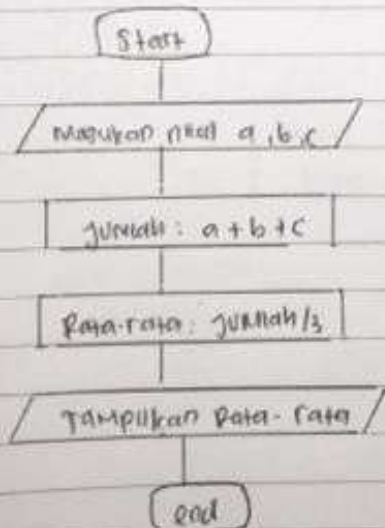 Start
Masukan nilai a, b, c
Jumlah : a + b + c
Rata-rata : Jumlah/3
Tampilkan Rata-rata
end